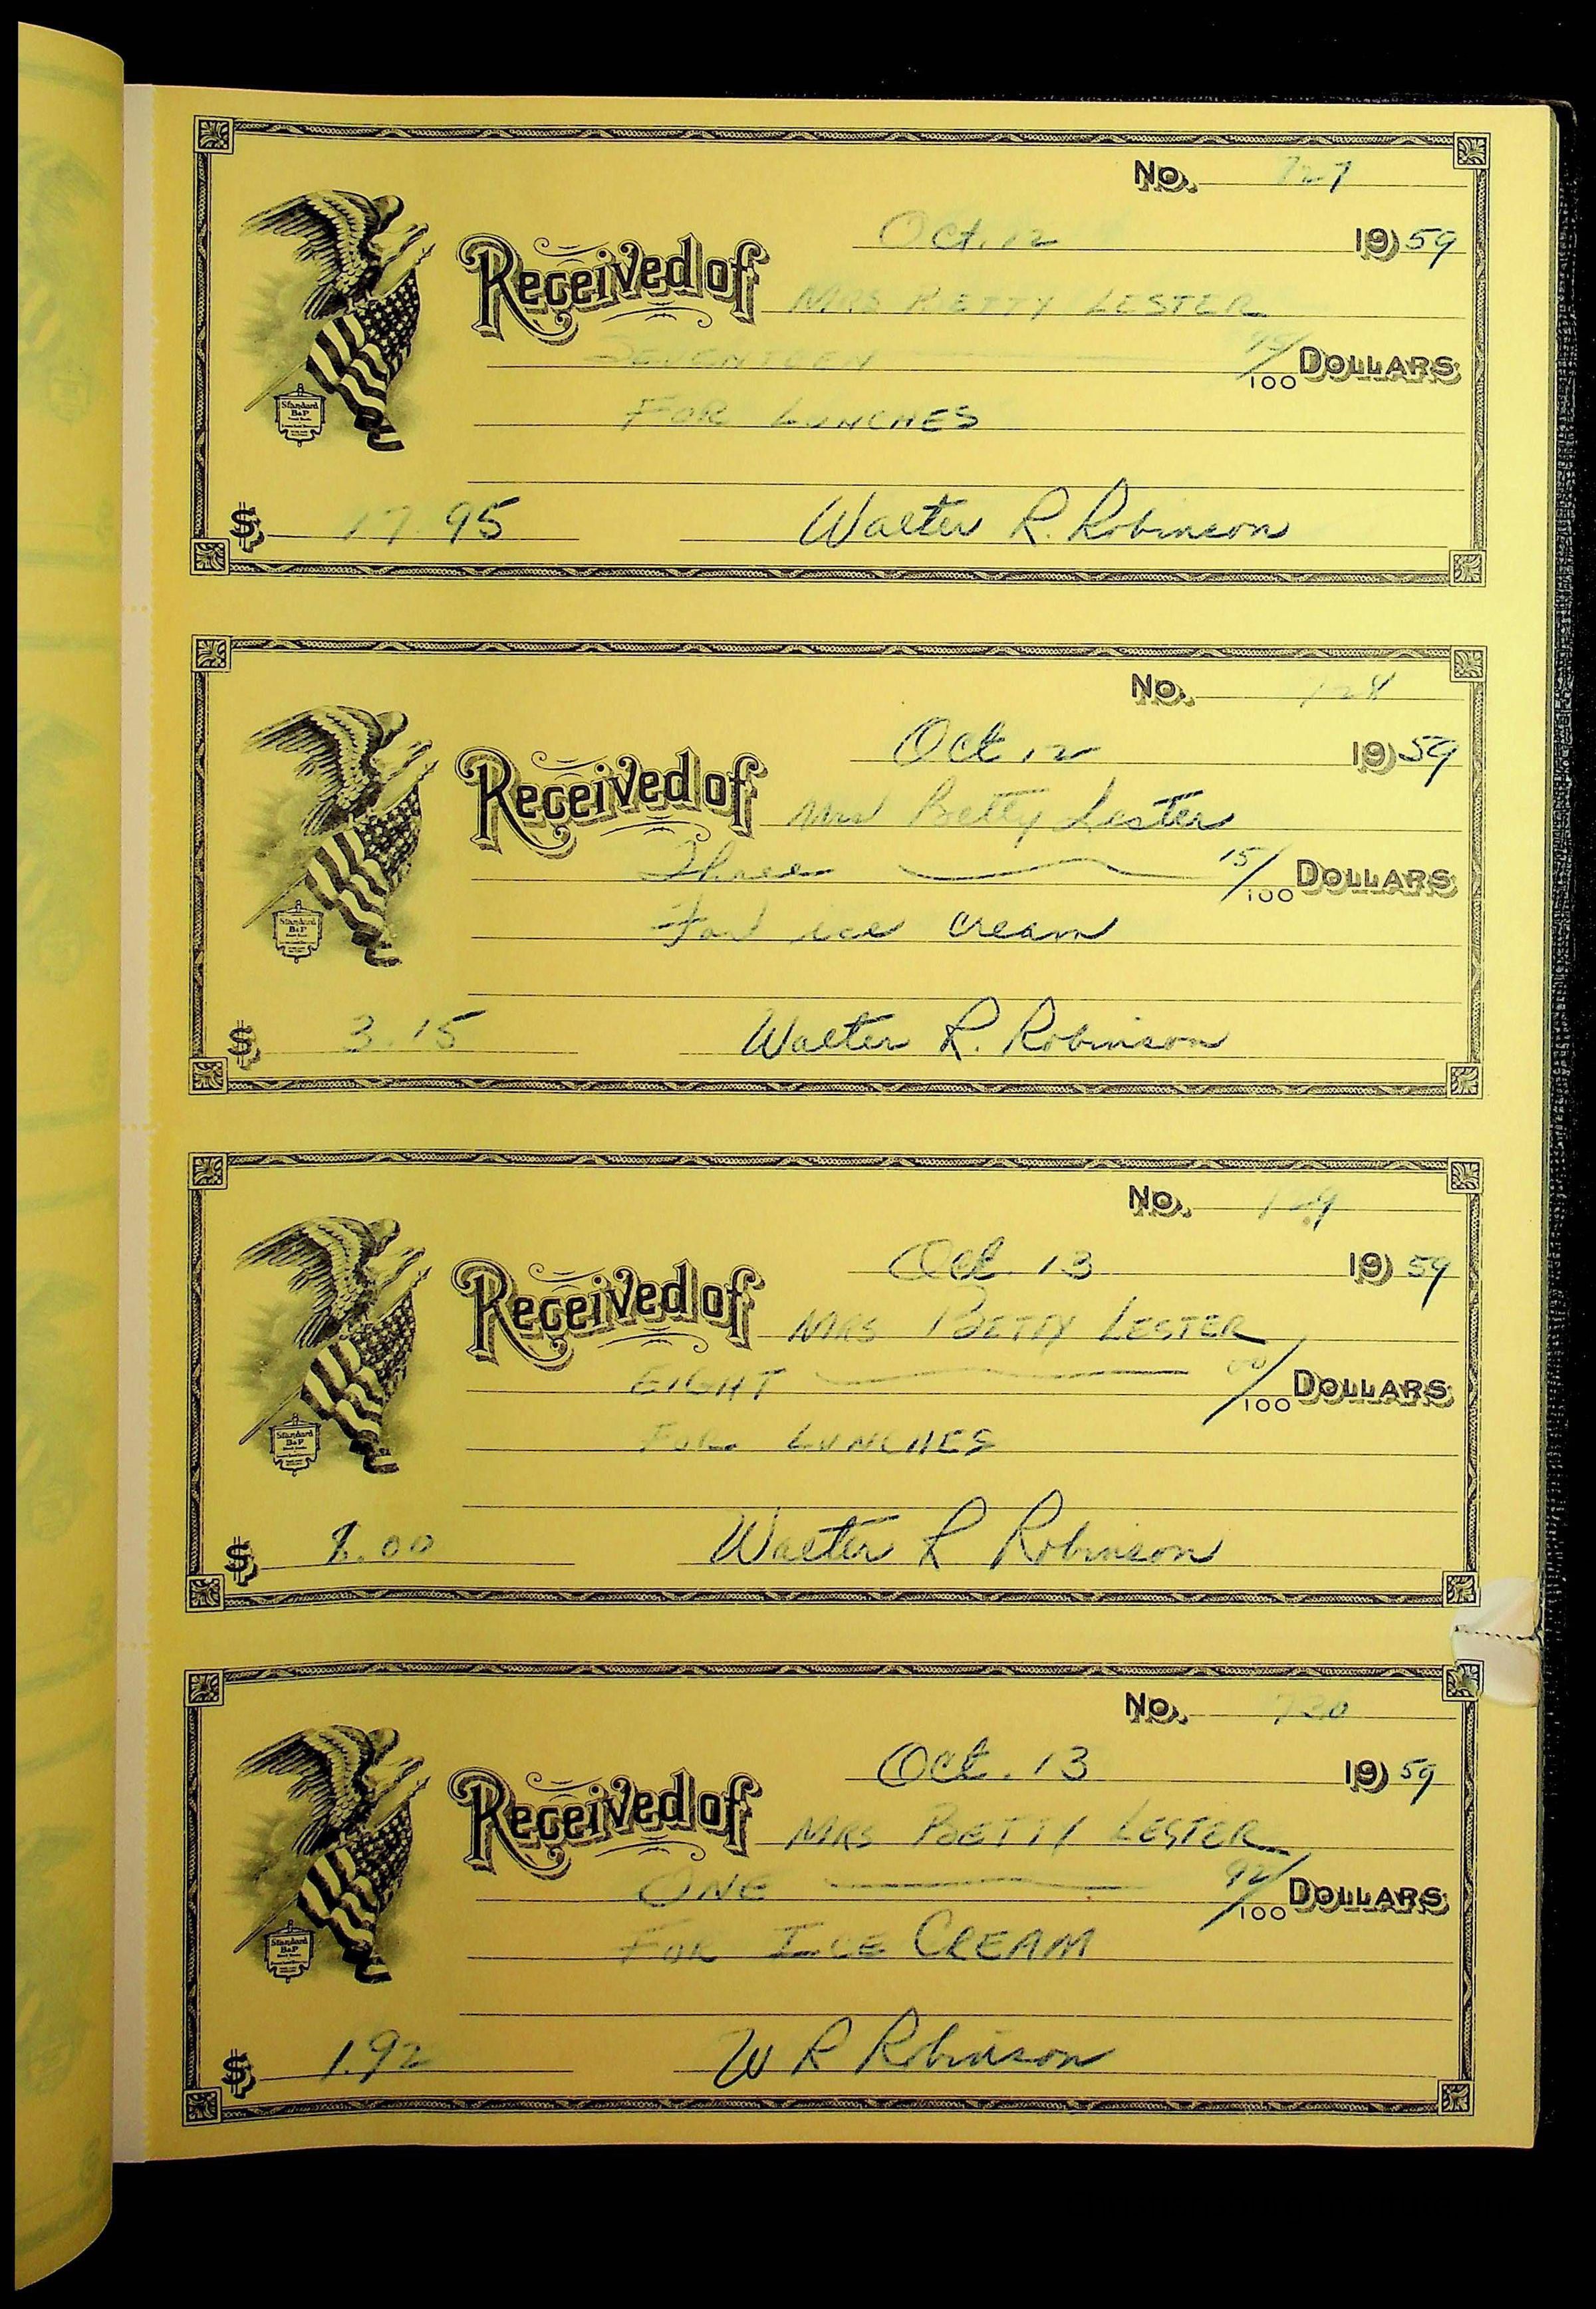 No. 727
Oct. 12 1959
Received of MRS BETTY LESTER
SEVENTEEN 95/100 DOLLARS
FOR LUNCHES
Standard
B&P
$ 17.95 Walter R. Robinson
No. 728
Oct 12 1959
Received of Mrs Betty Lester
Three 15/100 DOLLARS
For ice cream
Standard
B&P
$ 3.15 Walter R. Robinson
No. 729
Oct. 13 1959
Received of MRS BETTY LESTER
EIGHT 00/100 DOLLARS
FOR LUNCHES
Standard
B&P
$ 8.00 Walter R Robinson
No. 730
Oct. 13 1959
Received of MRS BETTY LESTER
ONE 92/100 DOLLARS
FOR ICE CREAM
Standard
B&P
$ 1.92 W R Robinson